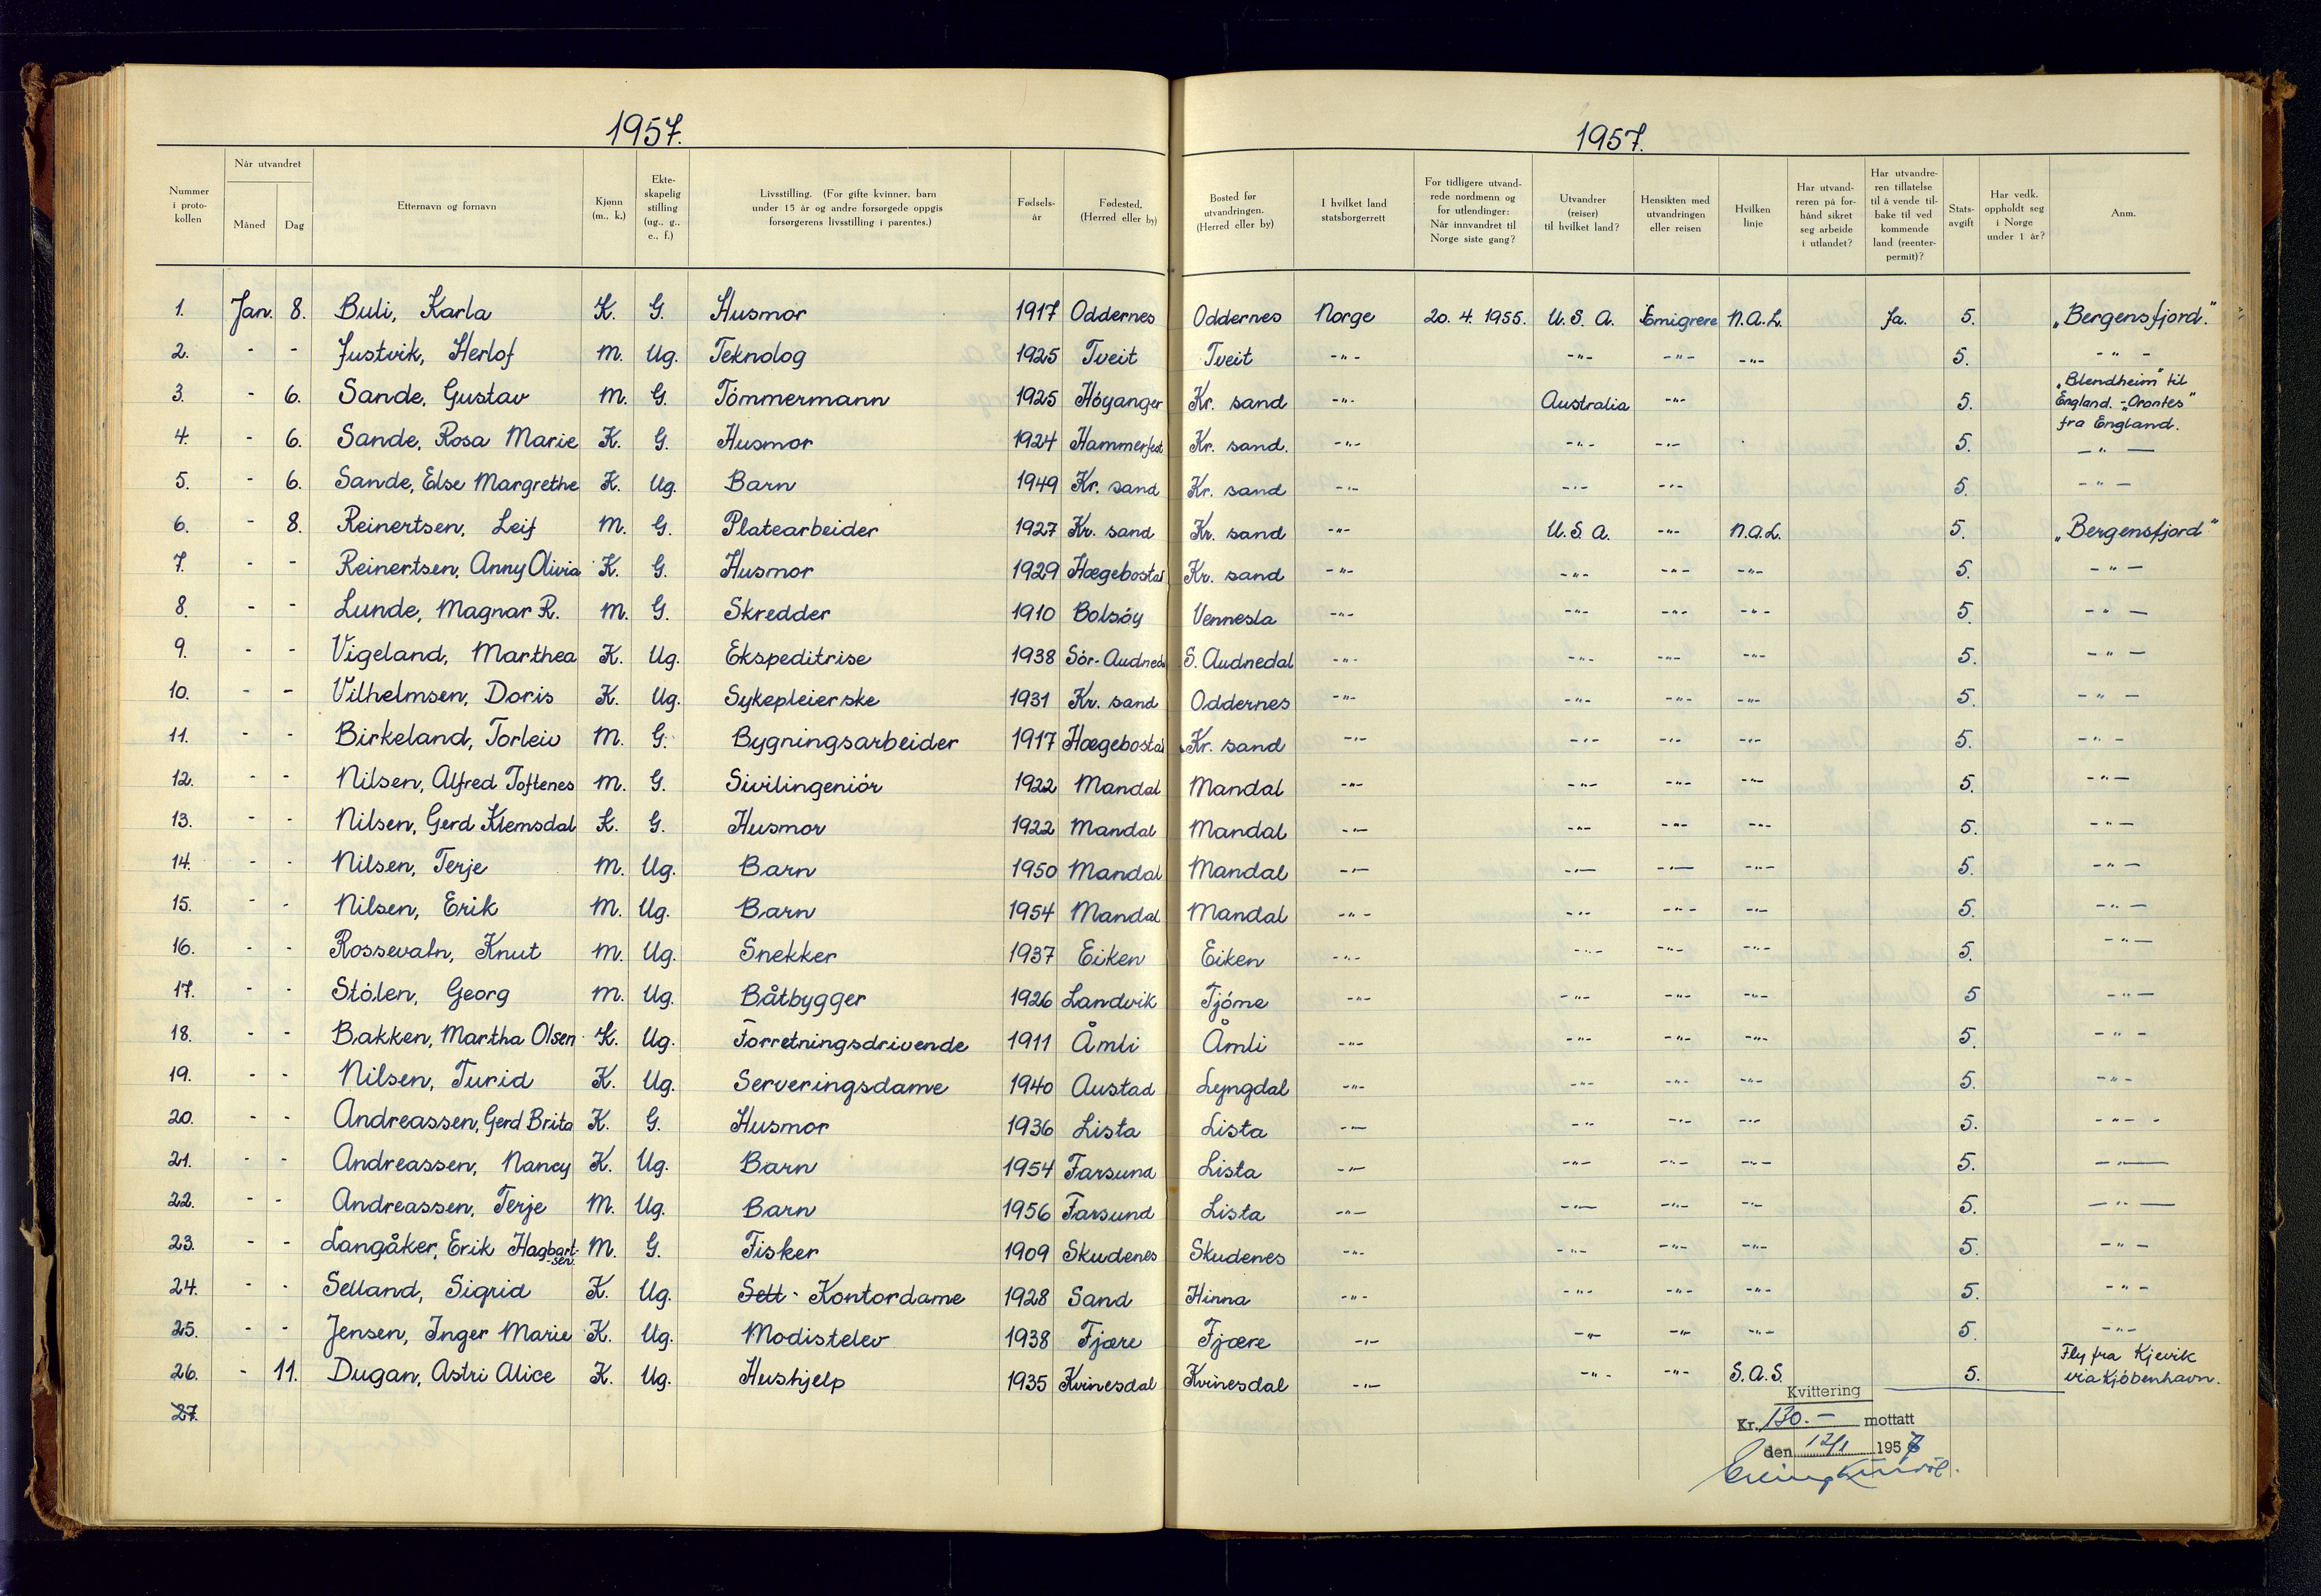 1957.
1957.
Nummer i proto- kollen
Når utvandret
Måned
Dag
Etternavn og fornavn
Kjønn (m., k.)
Ekte- skapelig stilling (ug., g., e., f.)
Livsstilling. (For gifte kvinner, barn under 15 år og andre forsørgede oppgis forsørgerens livsstilling i parentes.)
Fødsels- år
Fødested. (Herred eller by)
Bosted før utvandringen. (Herred eller by)
I hvilket land statsborgerrett
For tidligere utvand- rede nordmenn og for utlendinger: Når innvandret til Norge siste gang?
Utvandrer (reiser) til hvilket land?
Hensikten med utvandringen eller reisen
Hvilken linje
Har utvand- reren på for- hånd sikret seg arbeide i utlandet?
Har utvandre- ren tillatelse til å vende til- bake til ved kommende land (reenter- permit)?
Stats- avgift
Har vedk. oppholdt seg i Norge under 1 år?
Anm.
1. Jan. 8. Buli, Karla K. G. Husmor 1917 Oddernes Oddernes Norge 20. 4. 1955. U. S. A. Emigrere N.A.L. Ja. 5. „Bergensfjord."
2. - - Justvik, Herlof M. Ug. Teknolog 1925 Tveit Tveit -"- -"- -"- -"- 5. -"-
3. - 6. Sande, Gustav M. G. Tömmermann 1925 Höyanger Kr. sand -"- Australia -"- 5. „Blendheim" til England. - „Orontes" fra England.
4. - 6. Sande, Rosa Marie K. G. Husmor 1924 Hammerfest Kr. sand. -"- -"- -"- 5. -"-
5. - 6. Sande, Else Margrethe K. Ug. Barn 1949 Kr. sand Kr. sand -"- -"- -"- 5. -"-
6. - 8. Reinertsen, Leif M. G. Platearbeider 1927 Kr. sand Kr. sand -"- U. S. A. -"- N.A.L. 5. „Bergensfjord"
7. - - Reinertsen, Anny Olivia K. G. Husmor 1929 Hægebostad Kr. sand -"- -"- -"- -"- 5. -"-
8. - - Lunde, Magnar R. M. G. Skredder 1910 Bolsöy Vennesla -"- -"- -"- -"- 5. -"-
9. - - Vigeland, Marthea K. Ug. Ekspeditrise 1938 Sör-Audneda S. Audnedal -"- -"- -"- -"- 5. -"-
10. - - Vilhelmsen, Doris K. Ug. Sykepleierske 1931 Kr. sand Oddernes -"- -"- -"- -"- 5. -"-
11. - - Birkeland, Torleiv M. G. Bygningsarbeider 1917 Hægebostad Kr. sand -"- -"- -"- -"- 5. -"-
12. - - Nilsen, Alfred Toftenes M. G. Sivilingeniör 1922 Mandal Mandal -"- -"- -"- -"- 5. -"-
13. - - Nilsen, Gerd Klemsdal K. G. Husmor 1922 Mandal Mandal -"- -"- -"- -"- 5. -"-
14. - - Nilsen, Terje M. Ug. Barn 1950 Mandal Mandal -"- -"- -"- -"- 5. -"-
15. - - Nilsen, Erik M. Ug. Barn 1954 Mandal Mandal -"- -"- -"- -"- 5. -"-
16. - - Rossevatn, Knut M. Ug. Snekker 1937 Eiken Eiken -"- -"- -"- -"- 5. -"-
17. - - Stölen, Georg M. Ug. Båtbygger 1926 Landvik Tjöme -"- -"- -"- -"- 5 -"-
18. - - Bakken, Martha Olsen K. Ug. Forretningsdrivende 1911 Åmli Åmli -"- -"- -"- -"- 5. -"-
19. - - Nilsen, Turid K. Ug. Serveringsdame 1940 Austad Lyngdal -"- -"- -"- -"- 5. -"-
20. - - Andreassen, Gerd Brita K. G. Husmor 1936 Lista Lista -"- -"- -"- -"- 5. -"-
21. - - Andreassen, Nancy K. Ug. Barn 1954 Farsund Lista -"- -"- -"- -"- 5. -"-
22. - - Andreassen, Terje M. Ug. Barn 1956 Farsund Lista -"- -"- -"- -"- 5. -"-
23. - - Langåker, Erik Hagbart- -sen. M. G. Fisker 1909 Skudenes Skudenes -"- -"- -"- -"- 5. -"-
24. - - Selland, Sigrid K. Ug. Sett - Kontordame 1928 Sand Hinna -"- -"- -"- -"- 5. -"-
25. - - Jensen, Inger Marie K. Ug. Modistelev 1938 Fjære Fjære -"- -"- -"- -"- 5. -"-
26. - 11. Dugan, Astri Alice K. Ug. Hushjelp 1935 Kvinesdal Kvinesdal -"- -"- -"- S.A.S. 5. Fly fra Kjevik via Kjöbenhavn.
27.
Kvittering
Kr. 130.- mottatt
den 12/1 1957